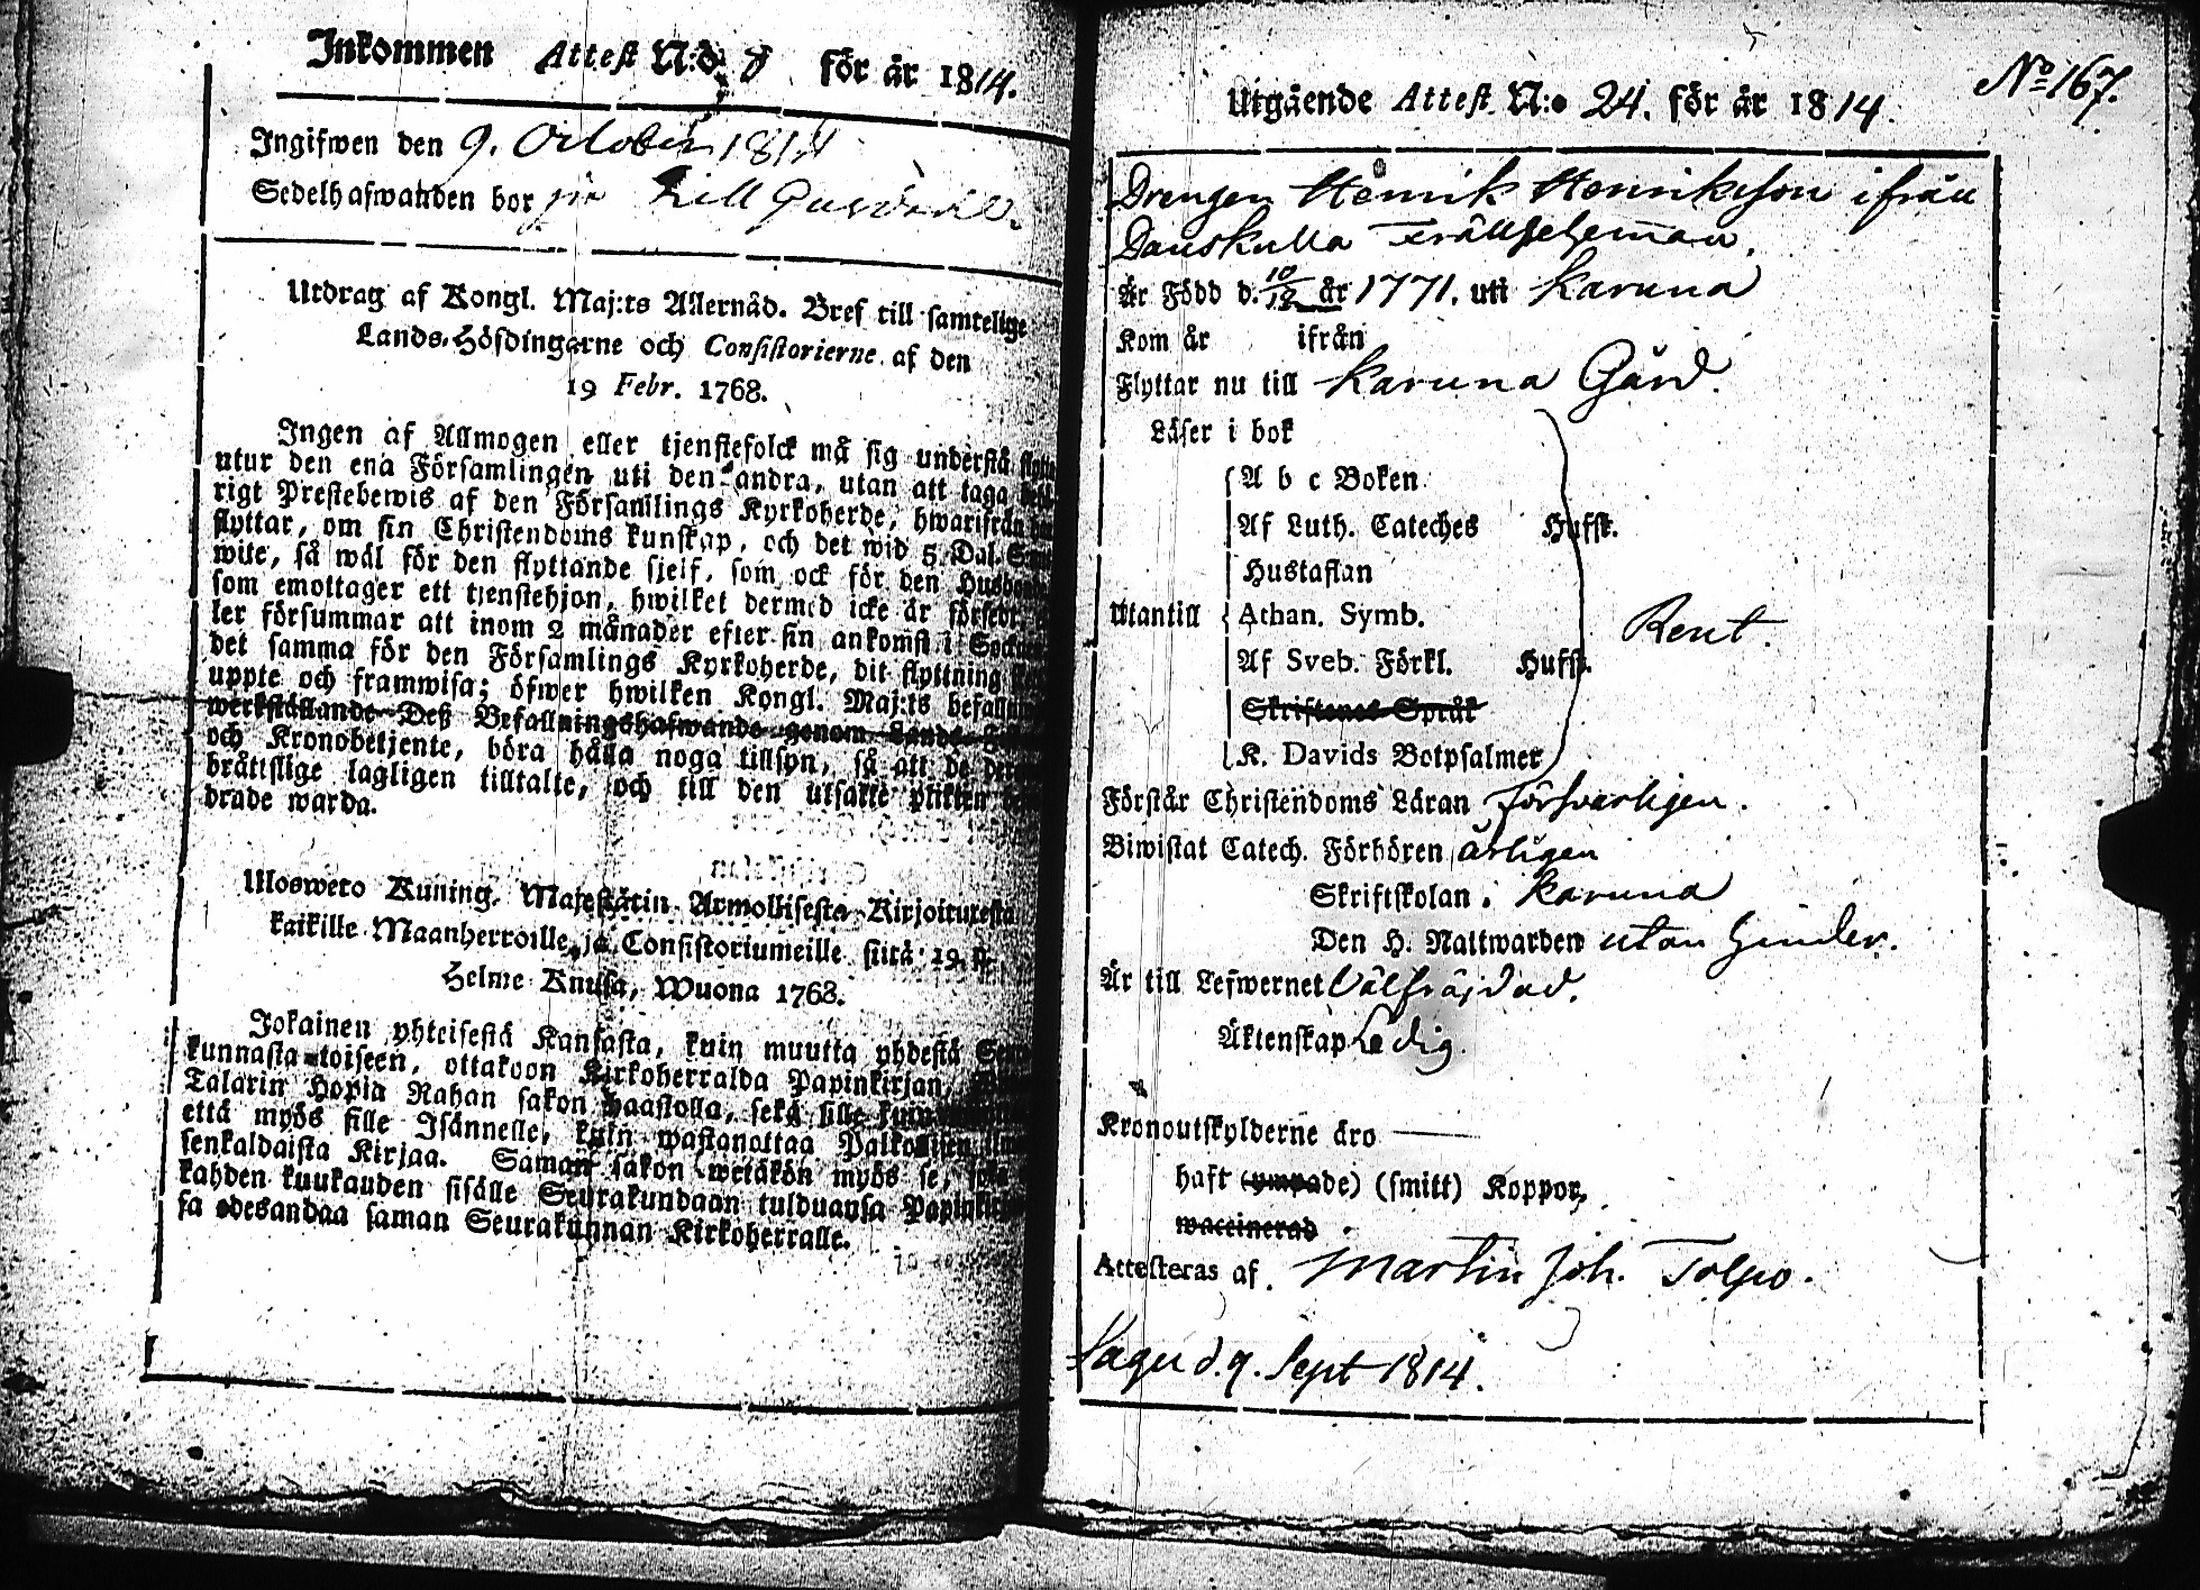 Inkommen Attest N:o 8 för år 1814.
Ingifwen den 9. October 1814
Sedelhafwanden bor på
Utdrag af Kongl. Maj:ts Allernåd. Bref till samtelige
Lands-Höfdingarne och Consistorierne af den
19 Febr. 1768.
Ingen af Allmogen eller tjenstefolck må sig understå
utur den ena Församlingen uti den andra, utan att taga
rigt Prestebewis af den Församlings Kyrkoherde, hwarifrån
flyttar, om sin Christendoms kunskap, och det wid 5 Dal.
wite, så wäl för den flyttande sjelf, som ock för den
som emottager ett tjenstehjon, hwilket dermed icke är
ler försummar att inom 2 månader efter sin ankomst i
det samma för den Församlings Kyrkoherde, dit flyttning
uppte och framwisa; öfwer hwilken Kongl. Maj:ts
werkställande Deß Befallningshafwande genom Lands
och Kronobetjente, böra hålla noga tillsyn, så att de
bråttslige lagligen tilltalte, och till den utsatte plikten
drade warda.
Ulosweto Kuning. Majestätin Armollisesta Kirjoituxesta
kaikille Maanherroille, ja Consistoriumeille siitä 19. p.
Helme Kuussa, Wuona 1768.
Jokainen yhteisestä Kansasta, kuin muutta yhdestä
kunnasta toiseen, ottakoon Kirkoherralda Papinkirjan,
Talarin Hopia Rahan sakon haastolla, sekä sille kuin
että myös sille Isännelle, kuin wastanottaa Palkollisen
senkaldaista Kirjaa. Saman sakon wetäkön myös se,
kahden kuukauden sisälle Seurakundaan tulduansa
sa edesandaa saman Seurakunnan Kirkoherralle.
No 167.
Utgående Attest N:o 24. för år 1814.
Drengen Henrik Henriksson ifrån
Danskulla Frälsehemman.
Är Född d. 10/12 år 1771. uti Karuna
Kom år ifrån
Flyttar nu till Karuna Gård.
Läser i bok
A b c Boken
Af Luth. Cateches Hufst.
Hustaflan
Utantill Athan. Symb.
Rent.
Af Sveb. Förkl. Hufst.
Skriftenes Språk
K. Davids Botpsalmer
Förstår Christendoms Läran försvarligen.
Biwistat Catech. Förhören årligen
Skriftskolan. Karuna
Den H. Nattwarden utan hinder.
Är till Lefwernet Välfräjdad.
Äktenskap Ledig.
Kronoutskylderne äro —
haft (ympade) (smitt) Koppor,
waccinerad
Attesteras af. Martin Joh. Tolpo.
Sagu d. 9. Sept 1814.